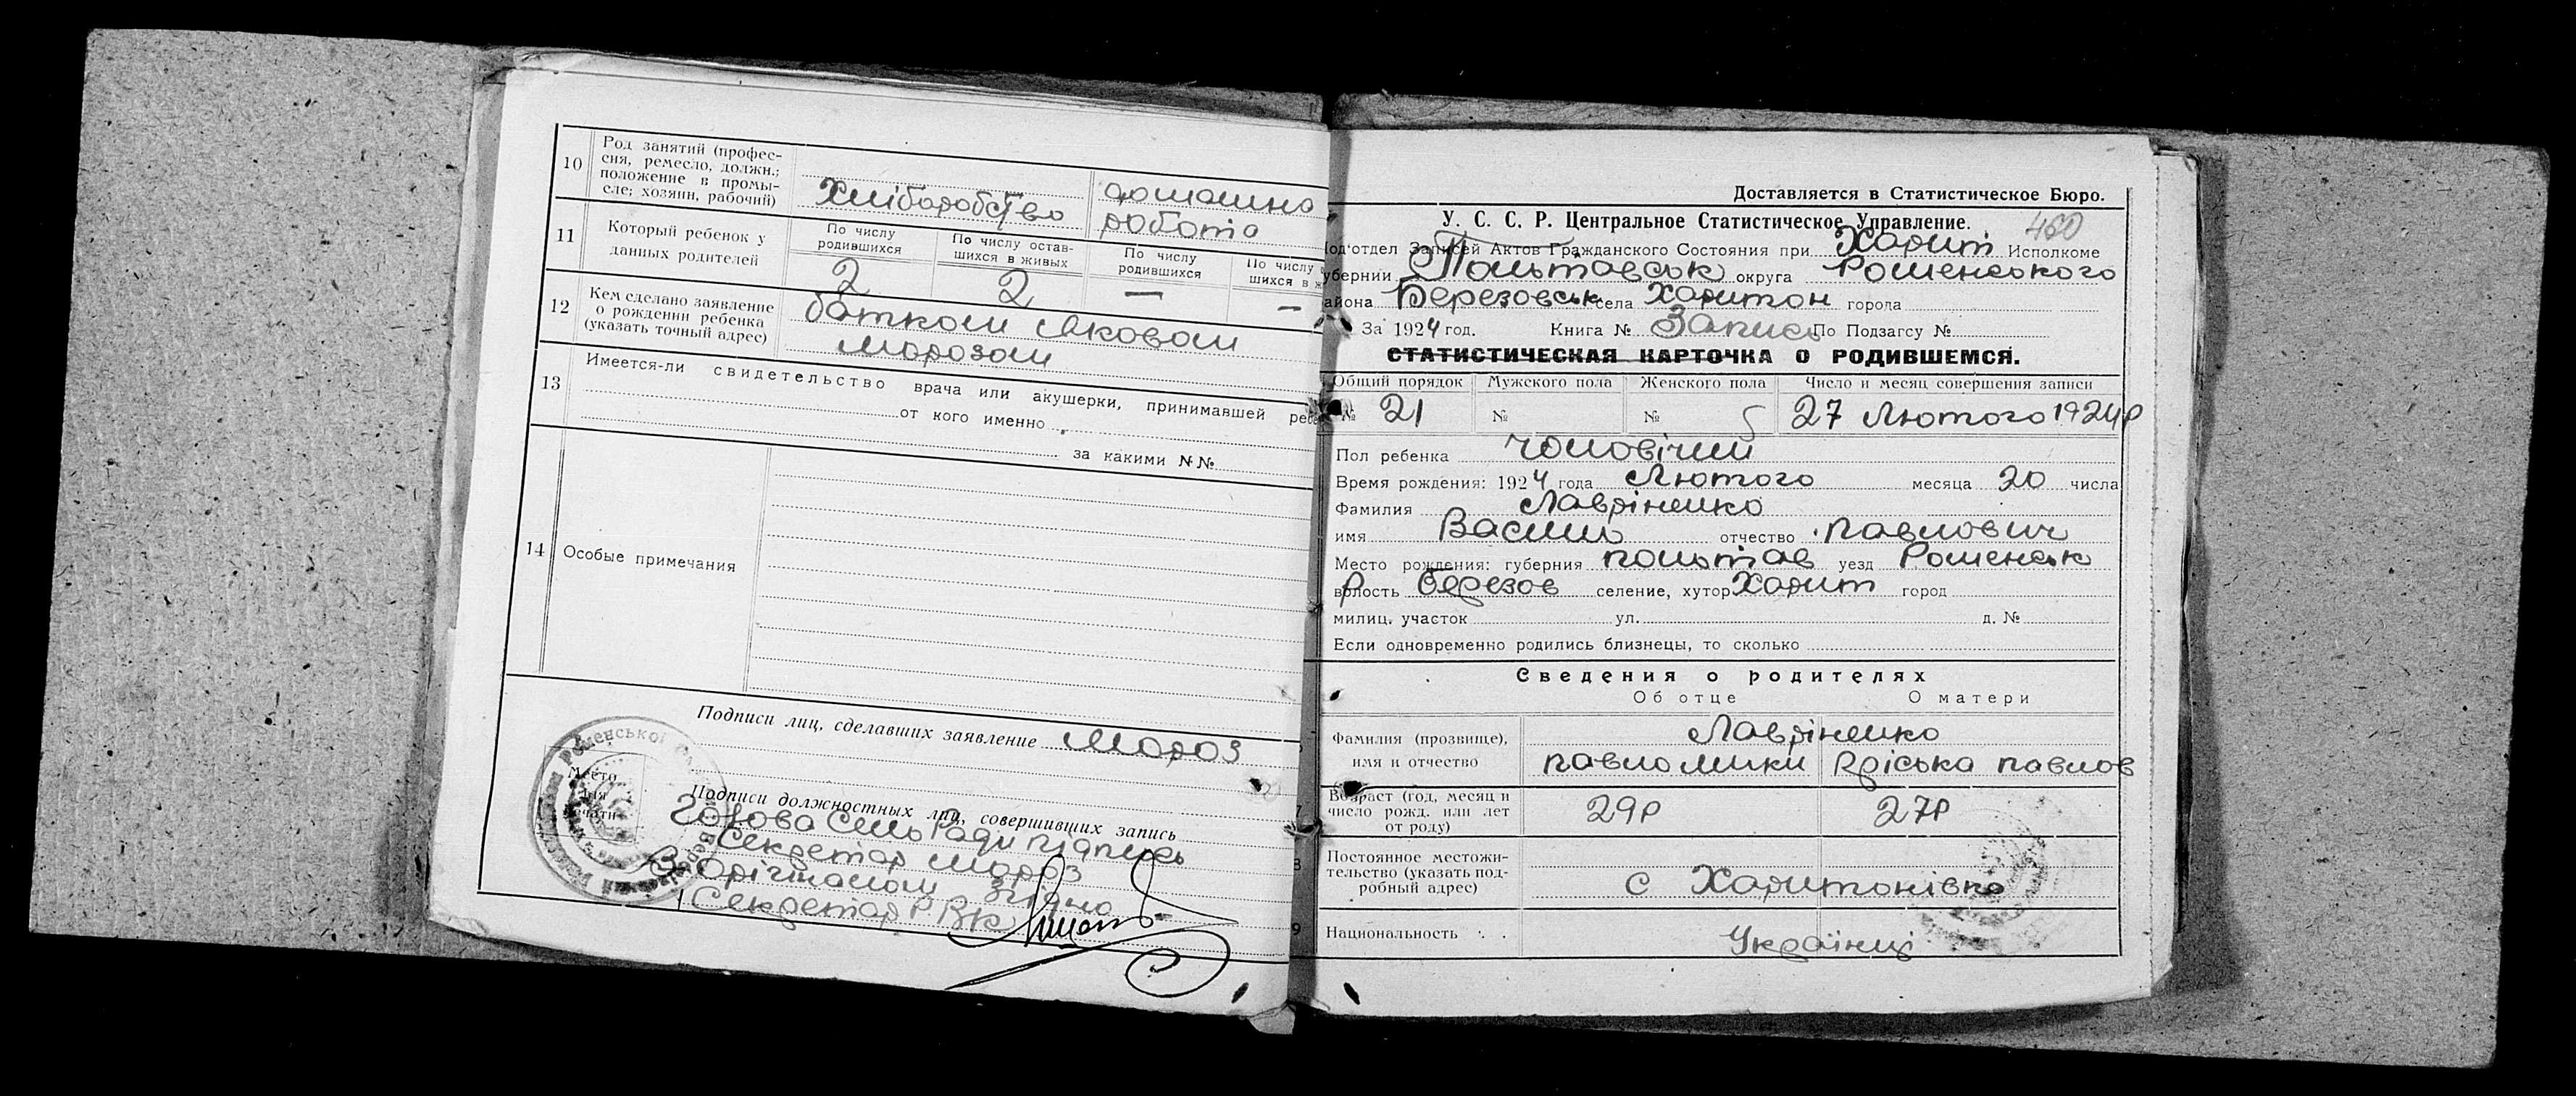 10 Род занятий (профес-
сия, ремесло, должн.;
положение в промы-
сле; хозяин, рабочий)
Хліборобство
домашня
робота
11 Который ребенок у
данных родителей
По числу
родившихся
По числу остав-
шихся в живых
По числу
родившихся
По числу
шихся в ж
2 2 — —
12 Кем сделано заявление
о рождении ребенка
(указать точный адрес)
батком Яковом
Морозом
13 Имеется-ли свидетельство врача или акушерки, принимавшей реб
от кого именно
за какими №№
14 Особые примечания
Подписи лиц, сделавших заявление Мороз
Место
для
печати
Подписи должностных лиц, совершивших запись
Голова Сель Ради підпись
Секретар Мороз
З Орігіналом Згідно
Секретар РВК
Доставляется в Статистическое Бюро.
У. С. С. Р. Центральное Статистическое Управление.
460
Подотдел Записей Актов Гражданского Состояния при Харит Исполкоме
губернии Польтавськ округа Роменського
района Березовськ села Харитон города
За 1924 год. Книга № Запись По Подзагсу №
СТАТИСТИЧЕСКАЯ КАРТОЧКА О РОДИВШЕМСЯ.
Общий порядок Мужского пола Женского пола Число и месяц совершения записи
№ 21 № № 27 Лютого 1924р
Пол ребенка чоловічий
Время рождения: 1924 года Лютого месяца 20 числа
Фамилия Лавріненко
имя Василь отчество Павлович
Место рождения: губерния польтав уезд Роменськ
волость р Березов селение, хутор Харит город
милиц. участок ул. д. №
Если одновременно родились близнецы, то сколько
Сведения о родителях
Об отце О матери
Фамилия (прозвище),
имя и отчество
Лавріненко
павло мики Яріська павлов
7 Возраст (год, месяц и
число рожд. или лет
от роду)
29р 27р
8 Постоянное местожи-
тельство (указать под-
робный адрес)
с Харитонівка
9 Национальность
Українці